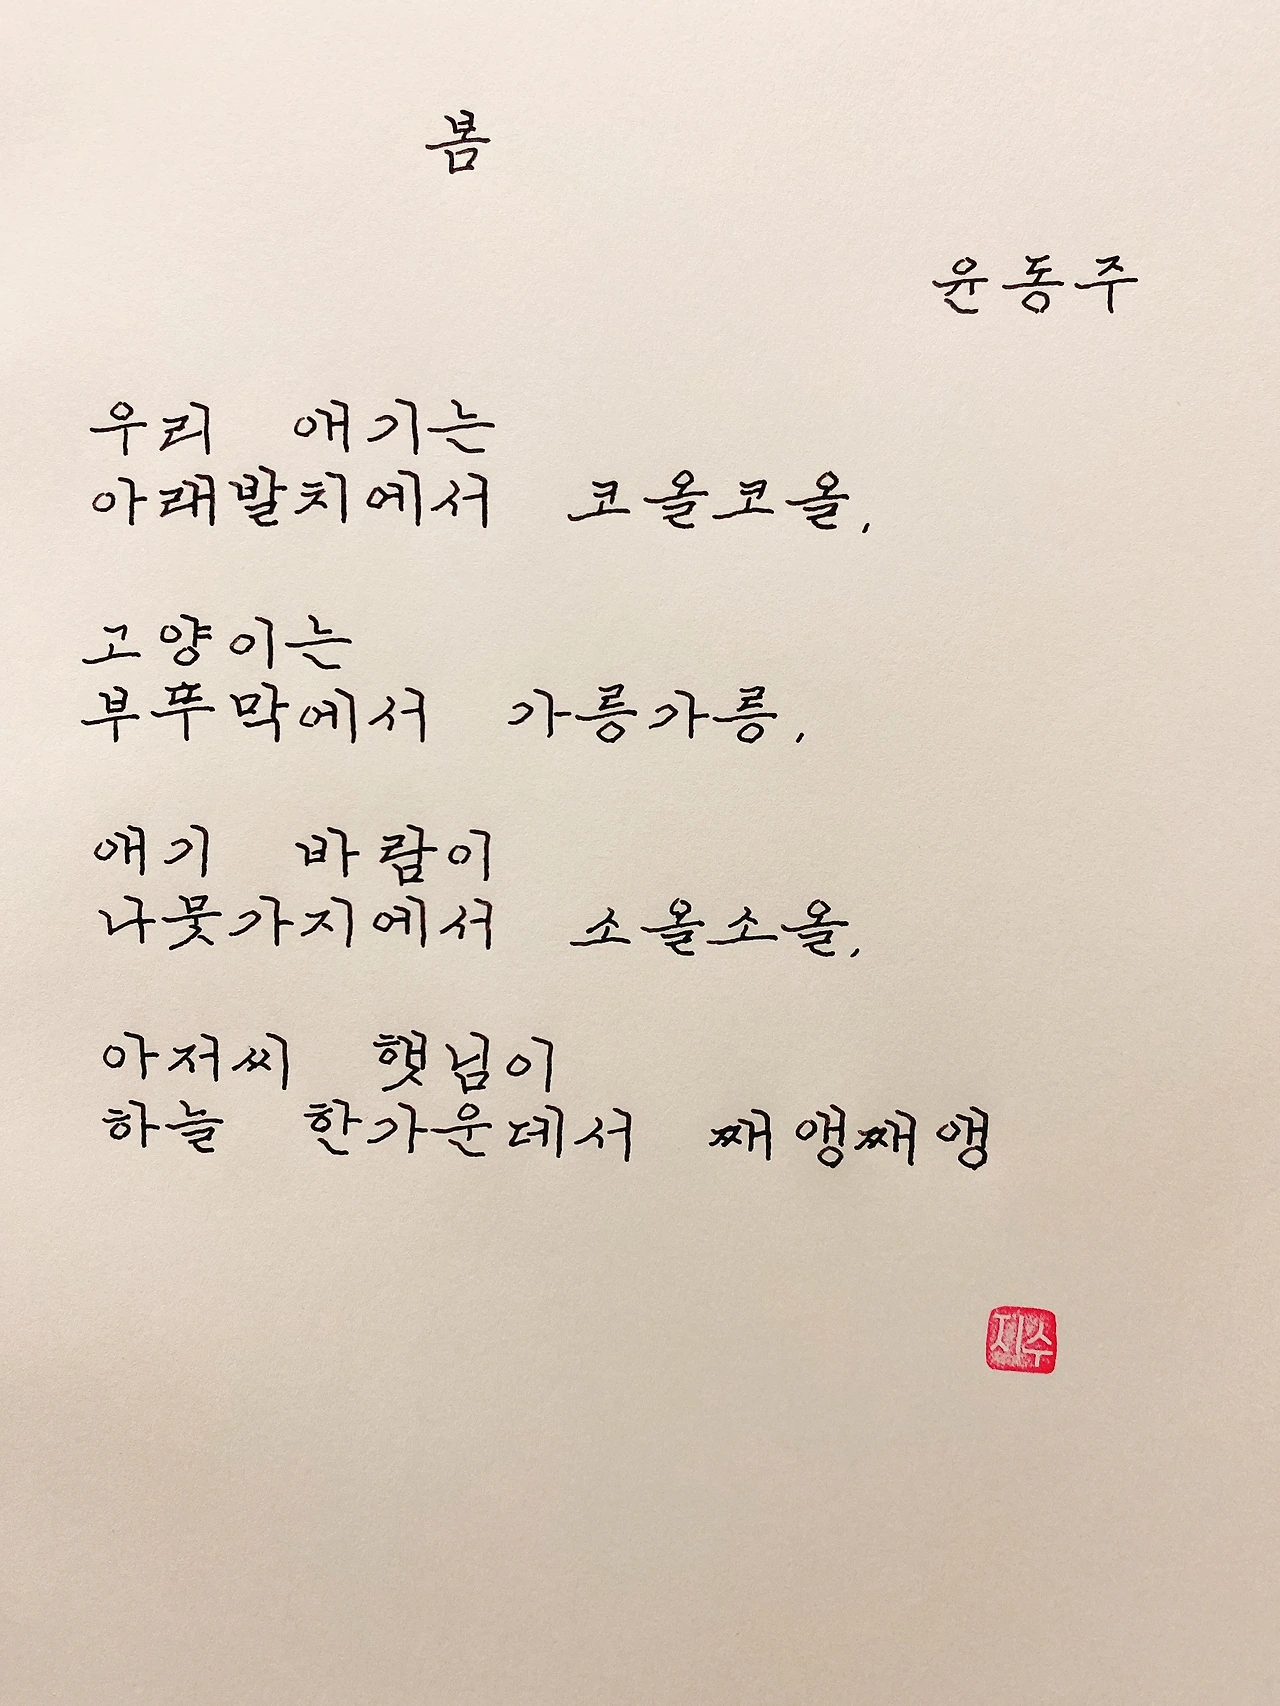 봄
윤동주
우리 애기는
아래발치에서 코올코올,
고양이는
부뚜막에서 가릉가릉,
애기 바람이
나뭇가지에서 소올소올,
아저씨 햇님이
하늘 한가운데서 째앵째앵
지수